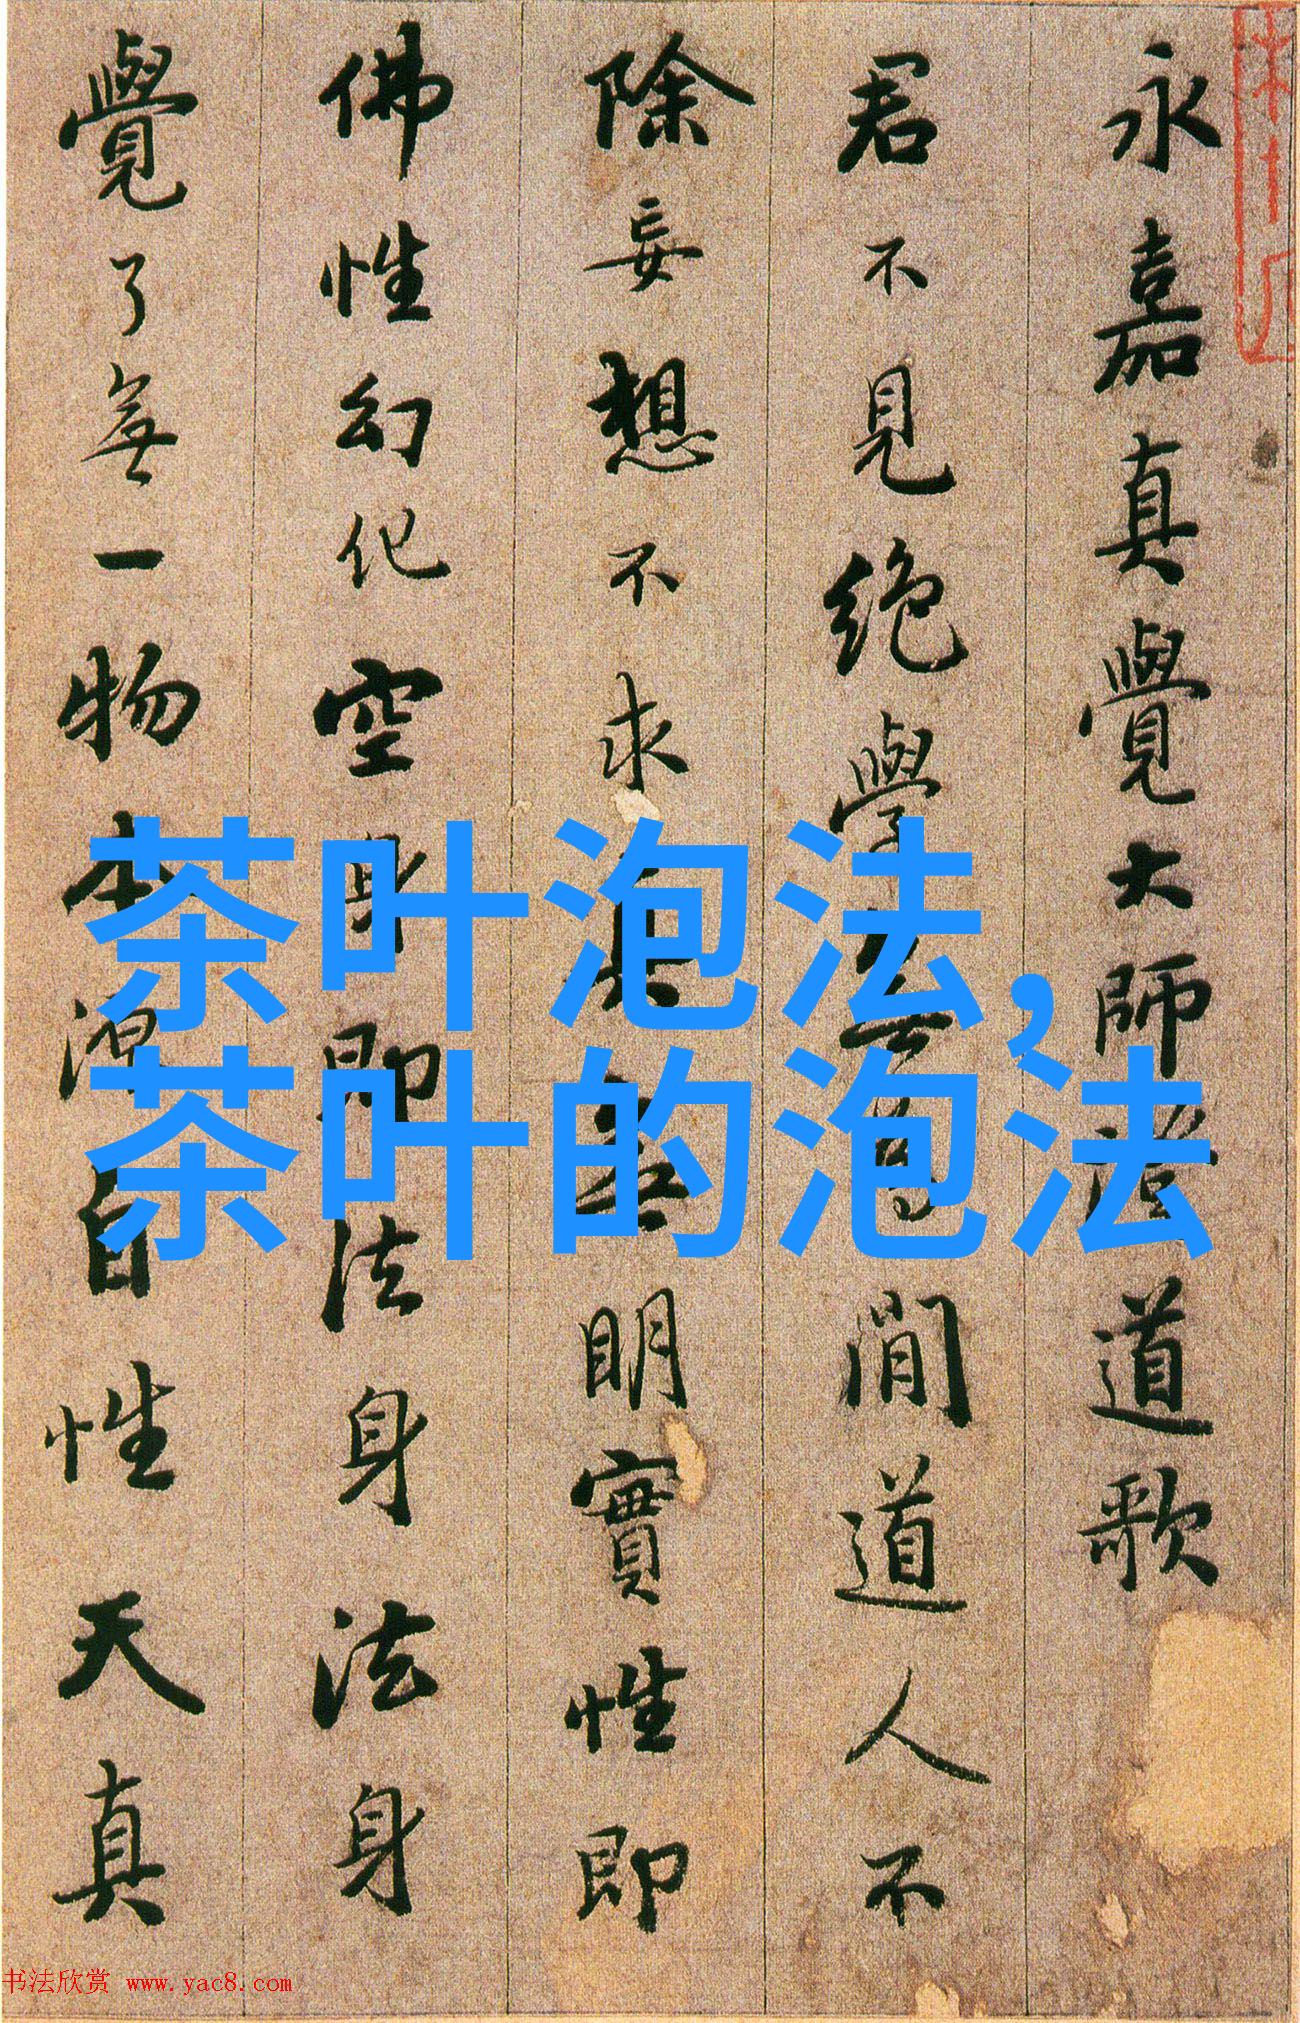 永嘉真覺大師證道歌
君不見絶學無爲閒道人不
除妄想不求真無明實性即
佛性幻化空身即法身法身
覺了無一物本源自性天真
茶叶泡法,
茶叶的泡法
书法欣赏 www.yac8.com